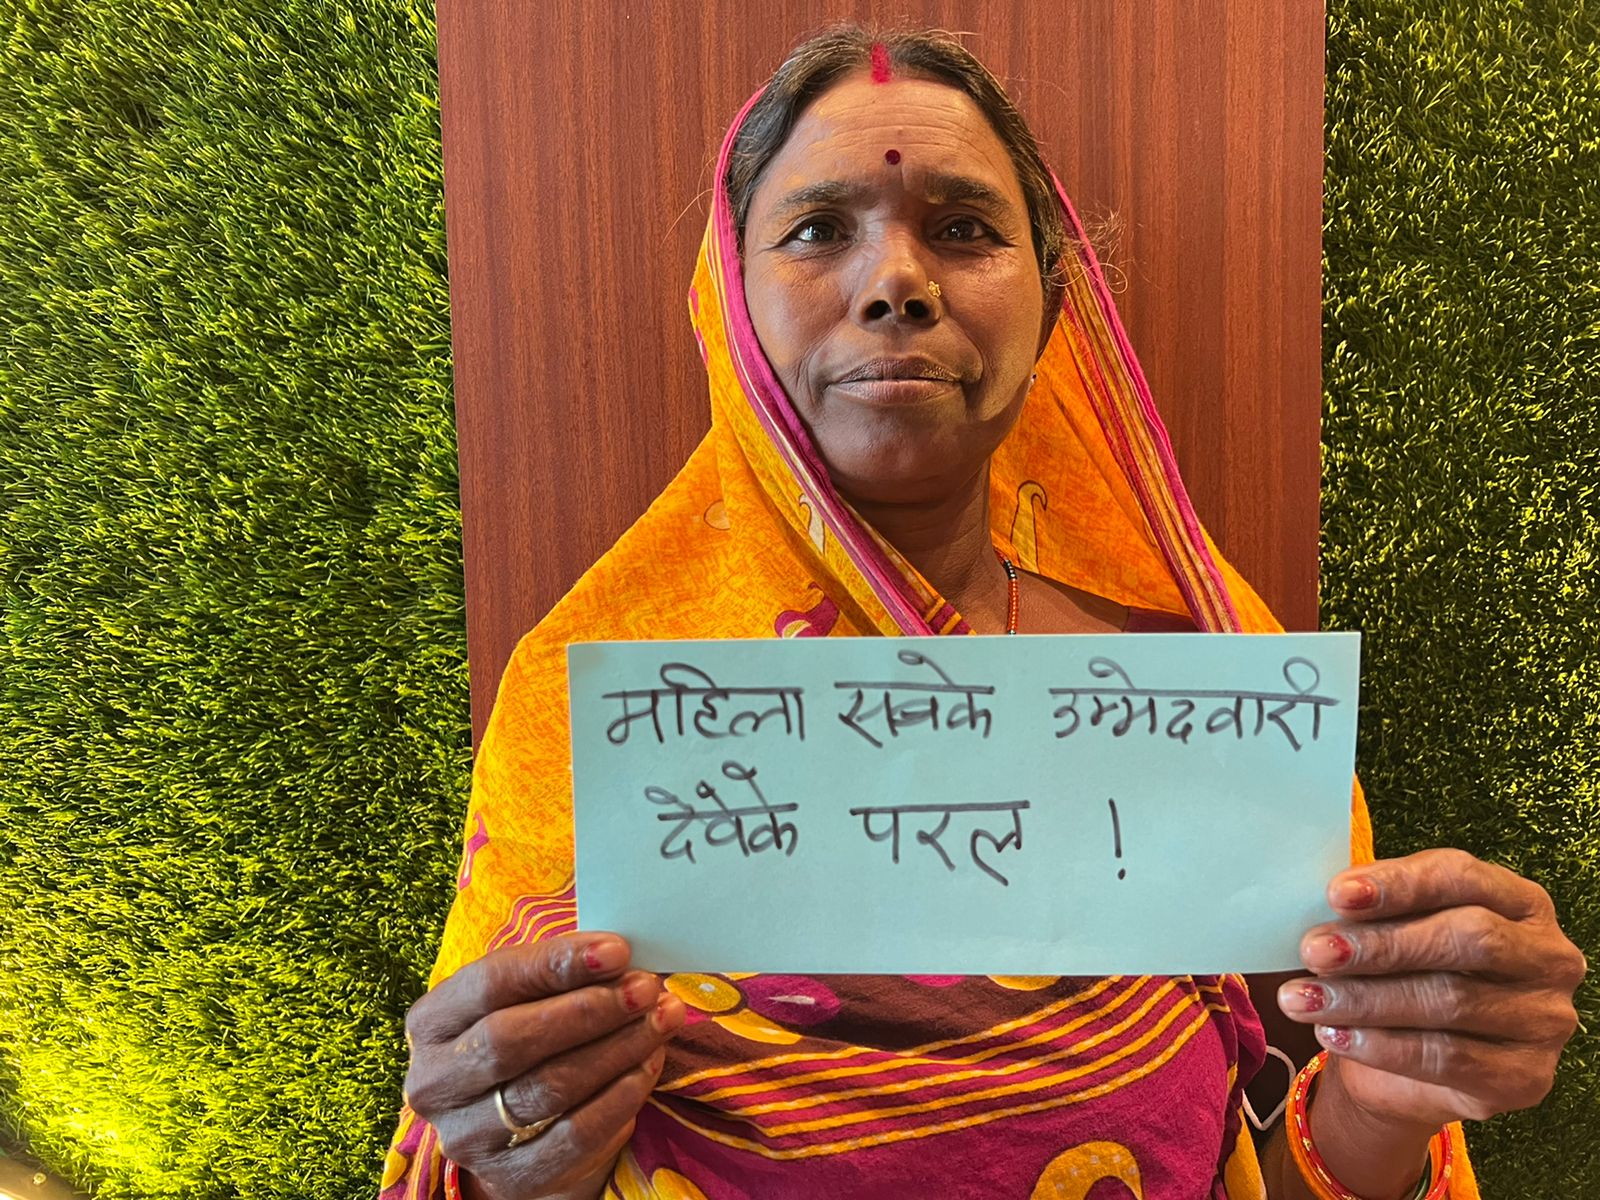 महिला सबके उम्मेदवारी
देवेके परल !